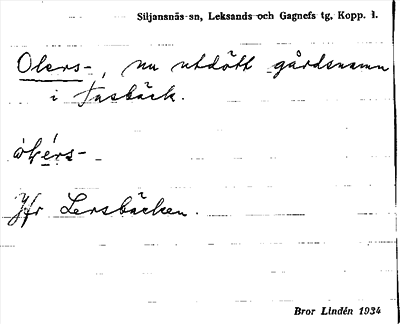 Siljansnäs sn, Leksands och Gagnefs tg, Kopp. l.
Olers-, nu utdött gårdsnamn
i Fasbäck.
òkérs-
Jfr Lersbäcken.
Bror Lindén 1934